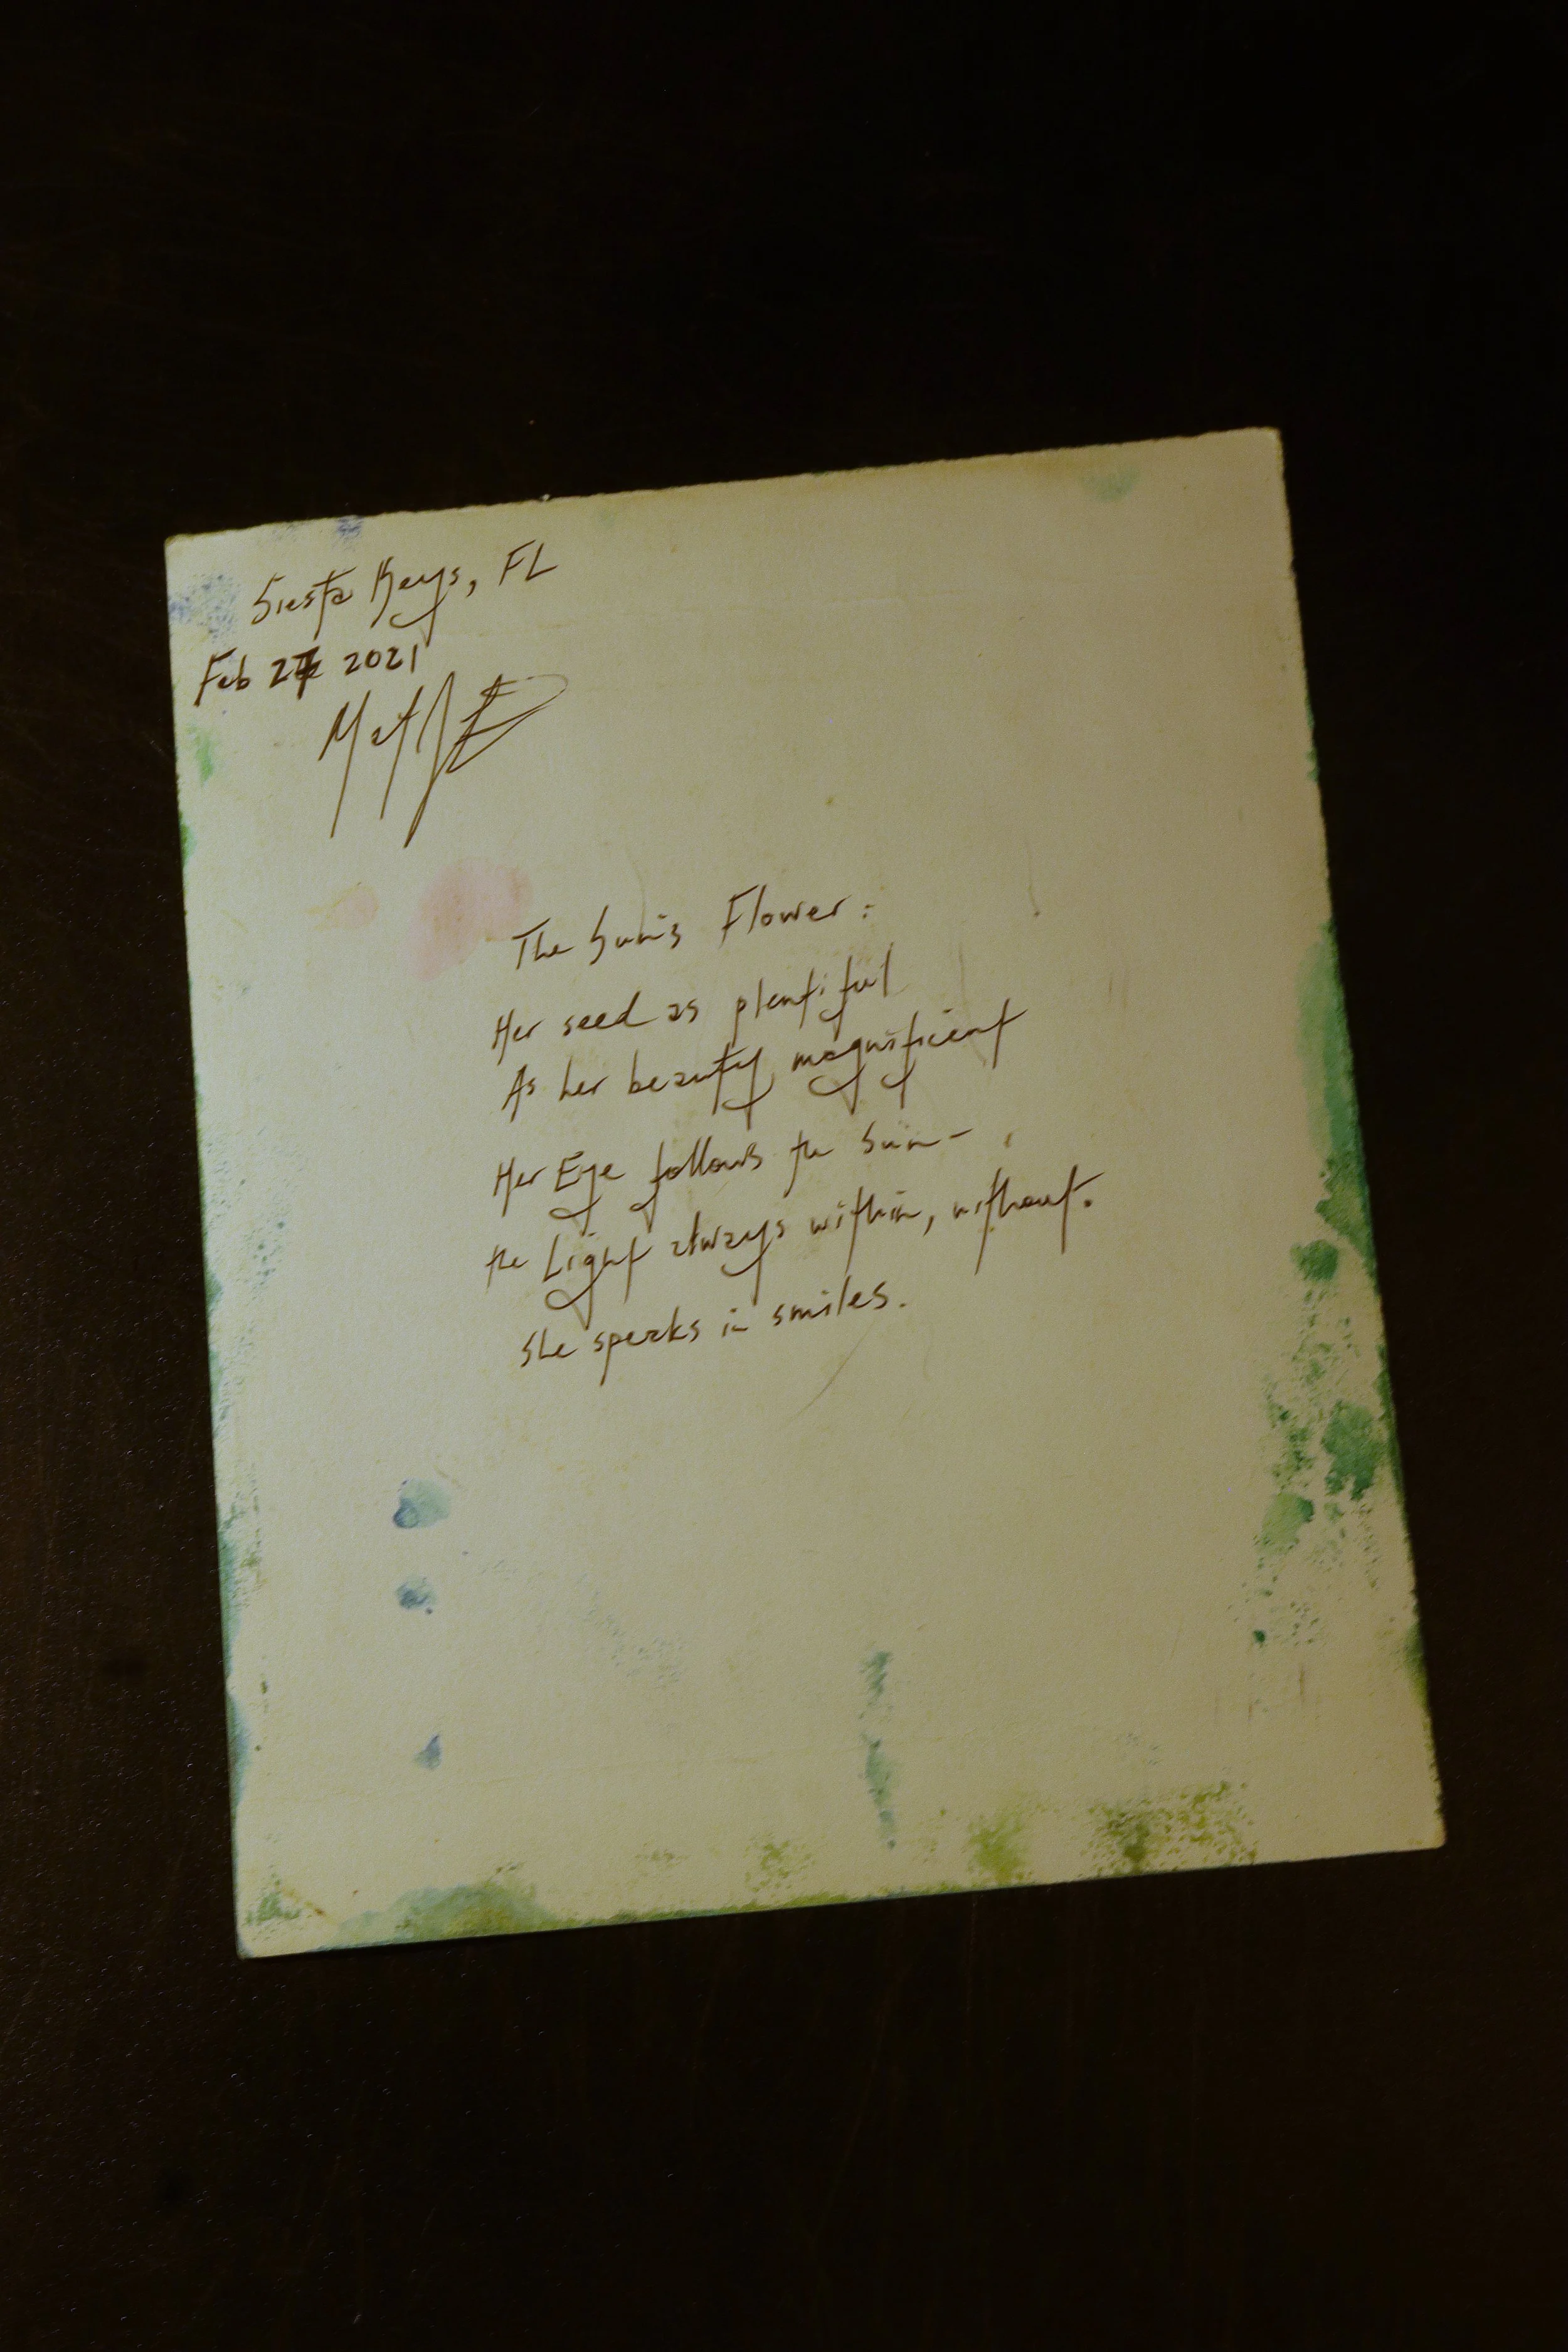 Siesta Keys, FL
Feb 27 2021
The Sun's Flower:
Her seed as plentiful
As her beauty magnificent
Her Eye follows the Sun-
the Light always within, without.
She speaks in smiles.